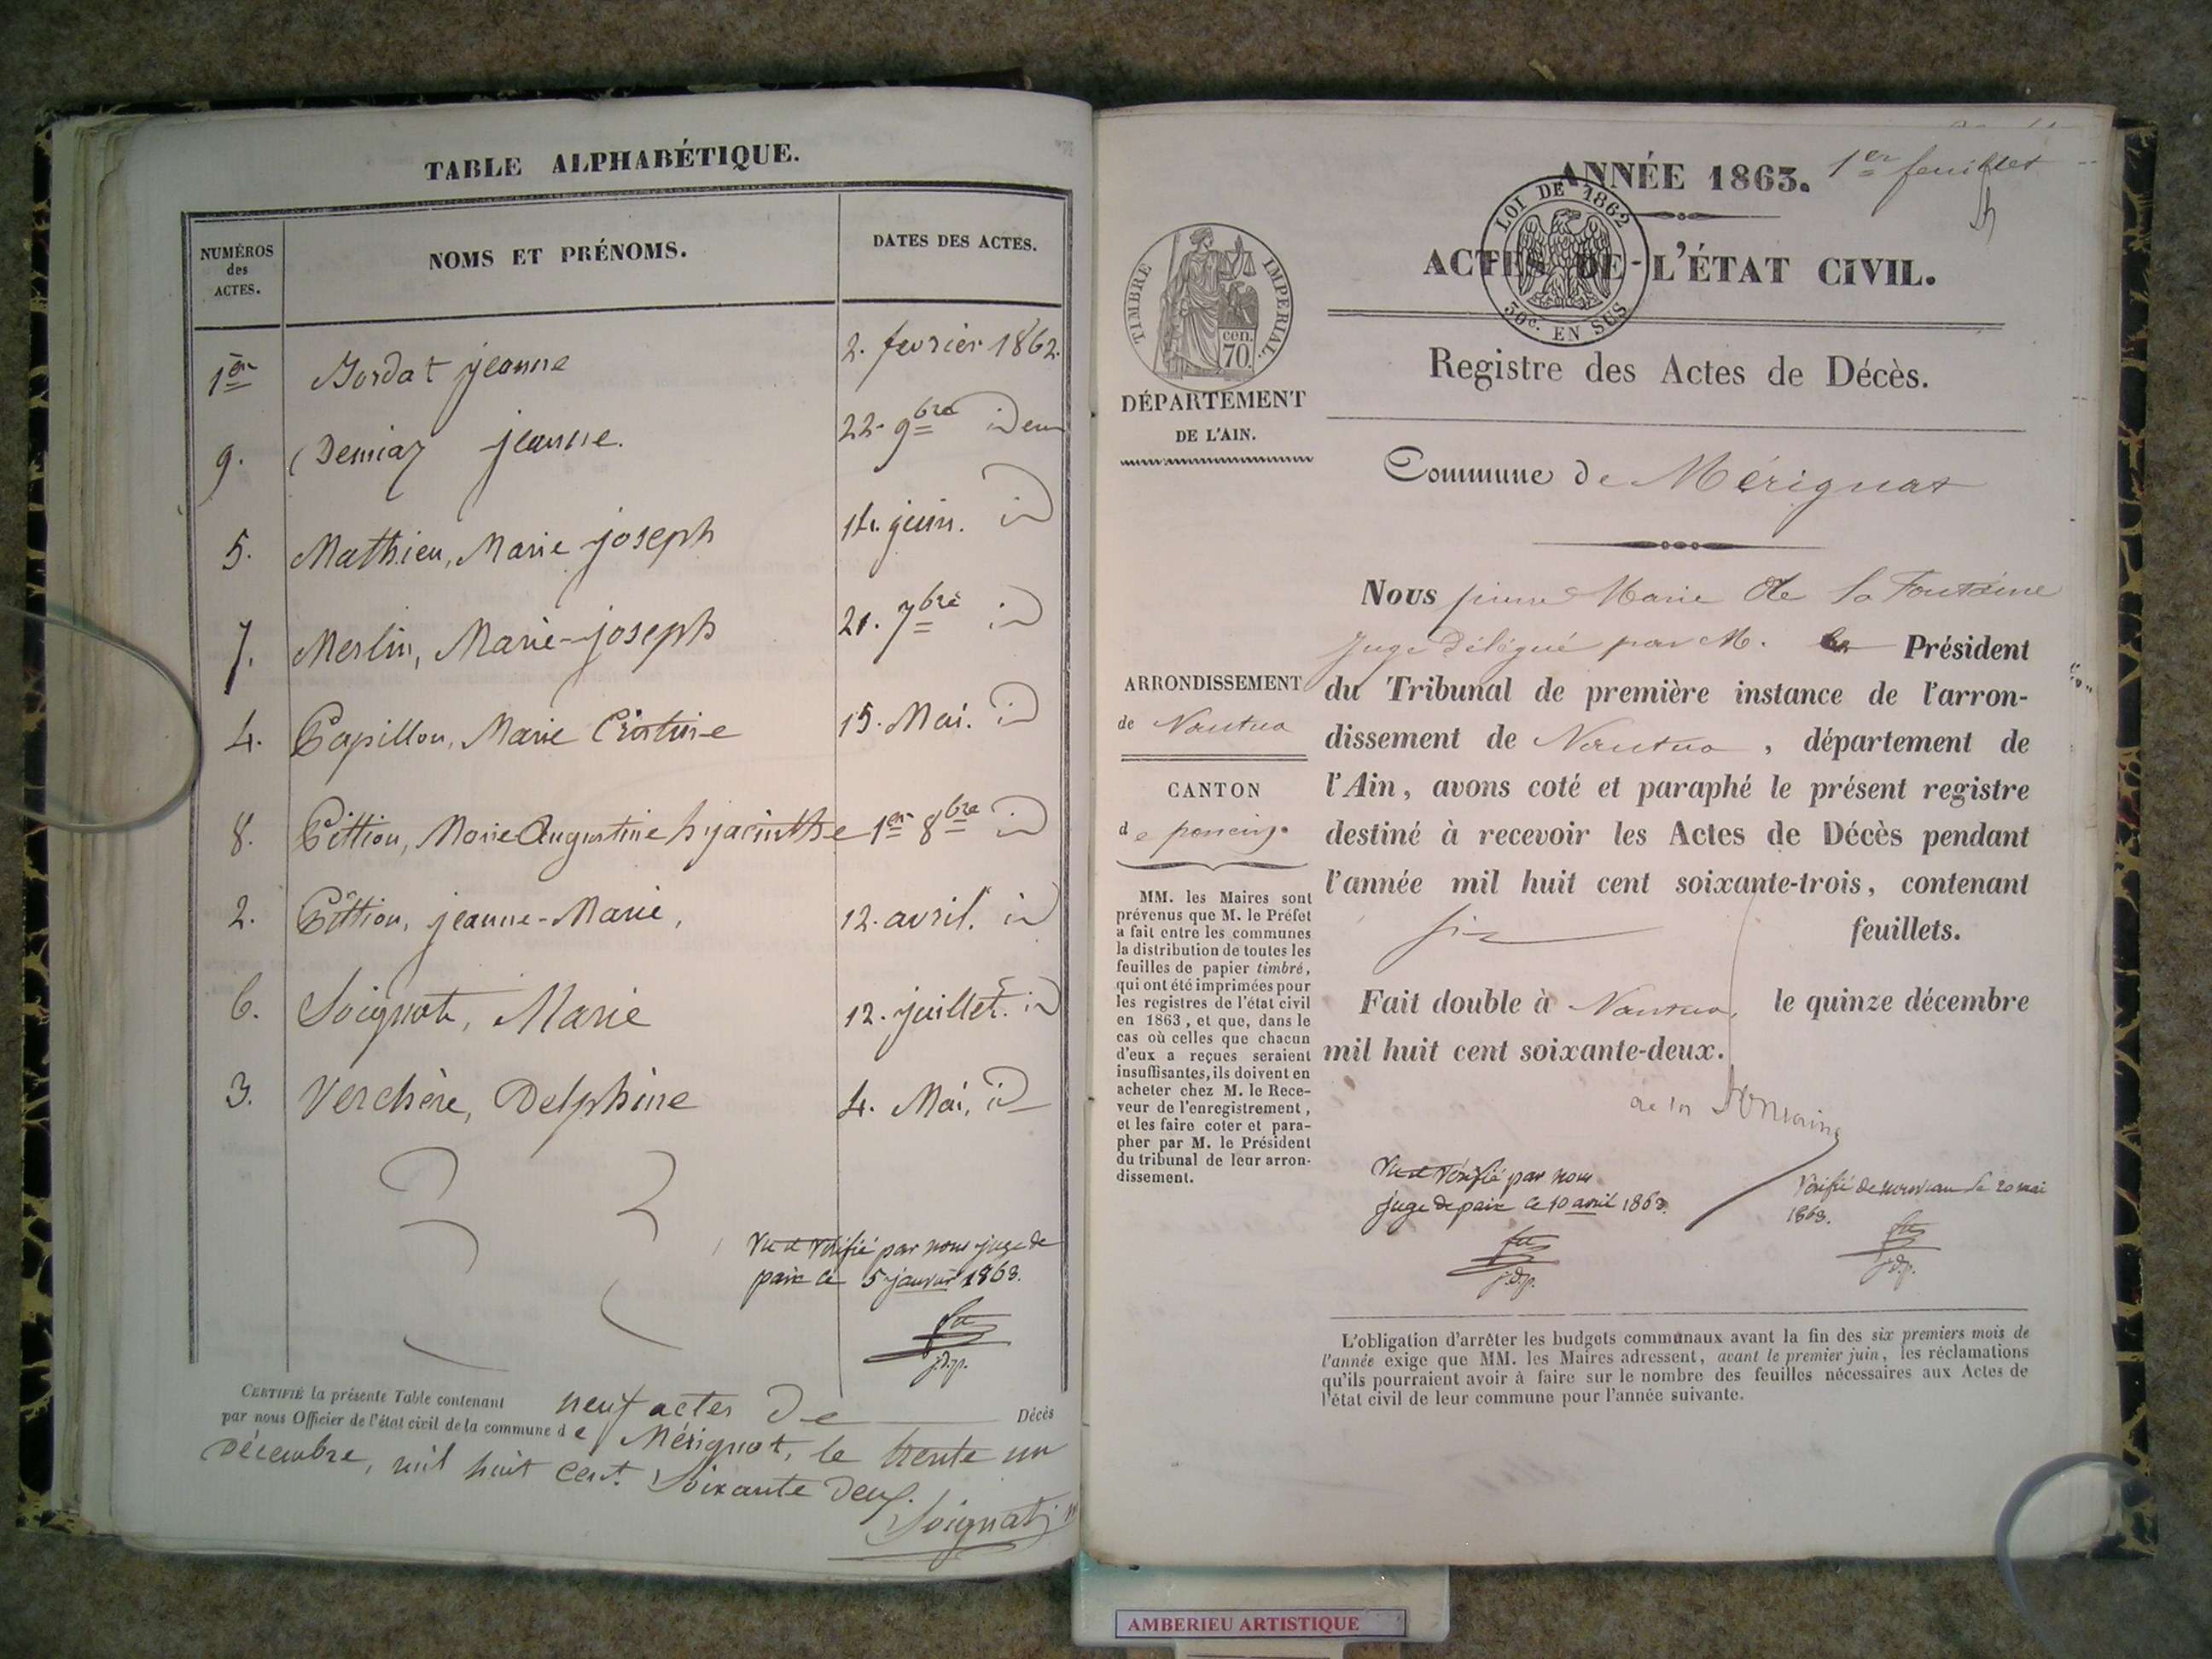 TABLE ALPHABÉTIQUE.
NUMÉROS
des
ACTES.
NOMS ET PRÉNOMS.
DATES DES ACTES.
1er Bordat jeanne 2. fevrier 1862.
9. Demiaz jeanne. 22. 9bre idem
5. Mathieu, Marie joseph 14. juin. id
7. Merlin, Marie-joseph 21. 7bre id
4. Papillon, Marie Cristine 15. Mai. id
8. Pittion, Marie Augustine hyacinthe 1er 8bre id
2. Pittion, jeanne-Marie, 12. avril. id
6. Soignat, Marie 12. juillet. id
3. Verchère, Delphine 4. Mai, id
Vu et vérifié par nous juge de
paix le 5 janvier 1863.
j.d.p.
CERTIFIÉ la présente Table contenant neuf actes De Décès
par nous Officier de l'état civil de la commune de Mérignat, le trente un
Décembre, mil huit cent Soixante Deux.
Soignat
ANNÉE 1863. 1er feuillet
LOI DE 1862
30c. EN SUS
ACTES DE L'ÉTAT CIVIL.
Registre des Actes de Décès.
TIMBRE IMPÉRIAL.
cen.
70.
DÉPARTEMENT
DE L'AIN.
Commune de Mérignat
ARRONDISSEMENT
de Nantua
CANTON
de poncin.
MM. les Maires sont
prévenus que M. le Préfet
a fait entre les communes
la distribution de toutes les
feuilles de papier timbré,
qui ont été imprimées pour
les registres de l'état civil
en 1863, et que, dans le
cas où celles que chacun
d'eux a reçues seraient
insuffisantes, ils doivent en
acheter chez M. le Rece-
veur de l'enregistrement,
et les faire coter et para-
pher par M. le Président
du tribunal de leur arron-
dissement.
Nous pierre Marie De la Fontaine
Juge Délégué par M. le Président
du Tribunal de première instance de l'arron-
dissement de Nantua, département de
l'Ain, avons coté et paraphé le présent registre
destiné à recevoir les Actes de Décès pendant
l'année mil huit cent soixante-trois, contenant
six feuillets.
Fait double à Nantua, le quinze décembre
mil huit cent soixante-deux.
de la Fontaine
Vu et vérifié par nous
juge de paix le 10 avril 1863.
j.d.p.
Vérifié de nouveau le 20 mai
1863.
j.d.p.
L'obligation d'arrêter les budgets communaux avant la fin des six premiers mois de
l'année exige que MM. les Maires adressent, avant le premier juin, les réclamations
qu'ils pourraient avoir à faire sur le nombre des feuilles nécessaires aux Actes de
l'état civil de leur commune pour l'année suivante.
AMBERIEU ARTISTIQUE